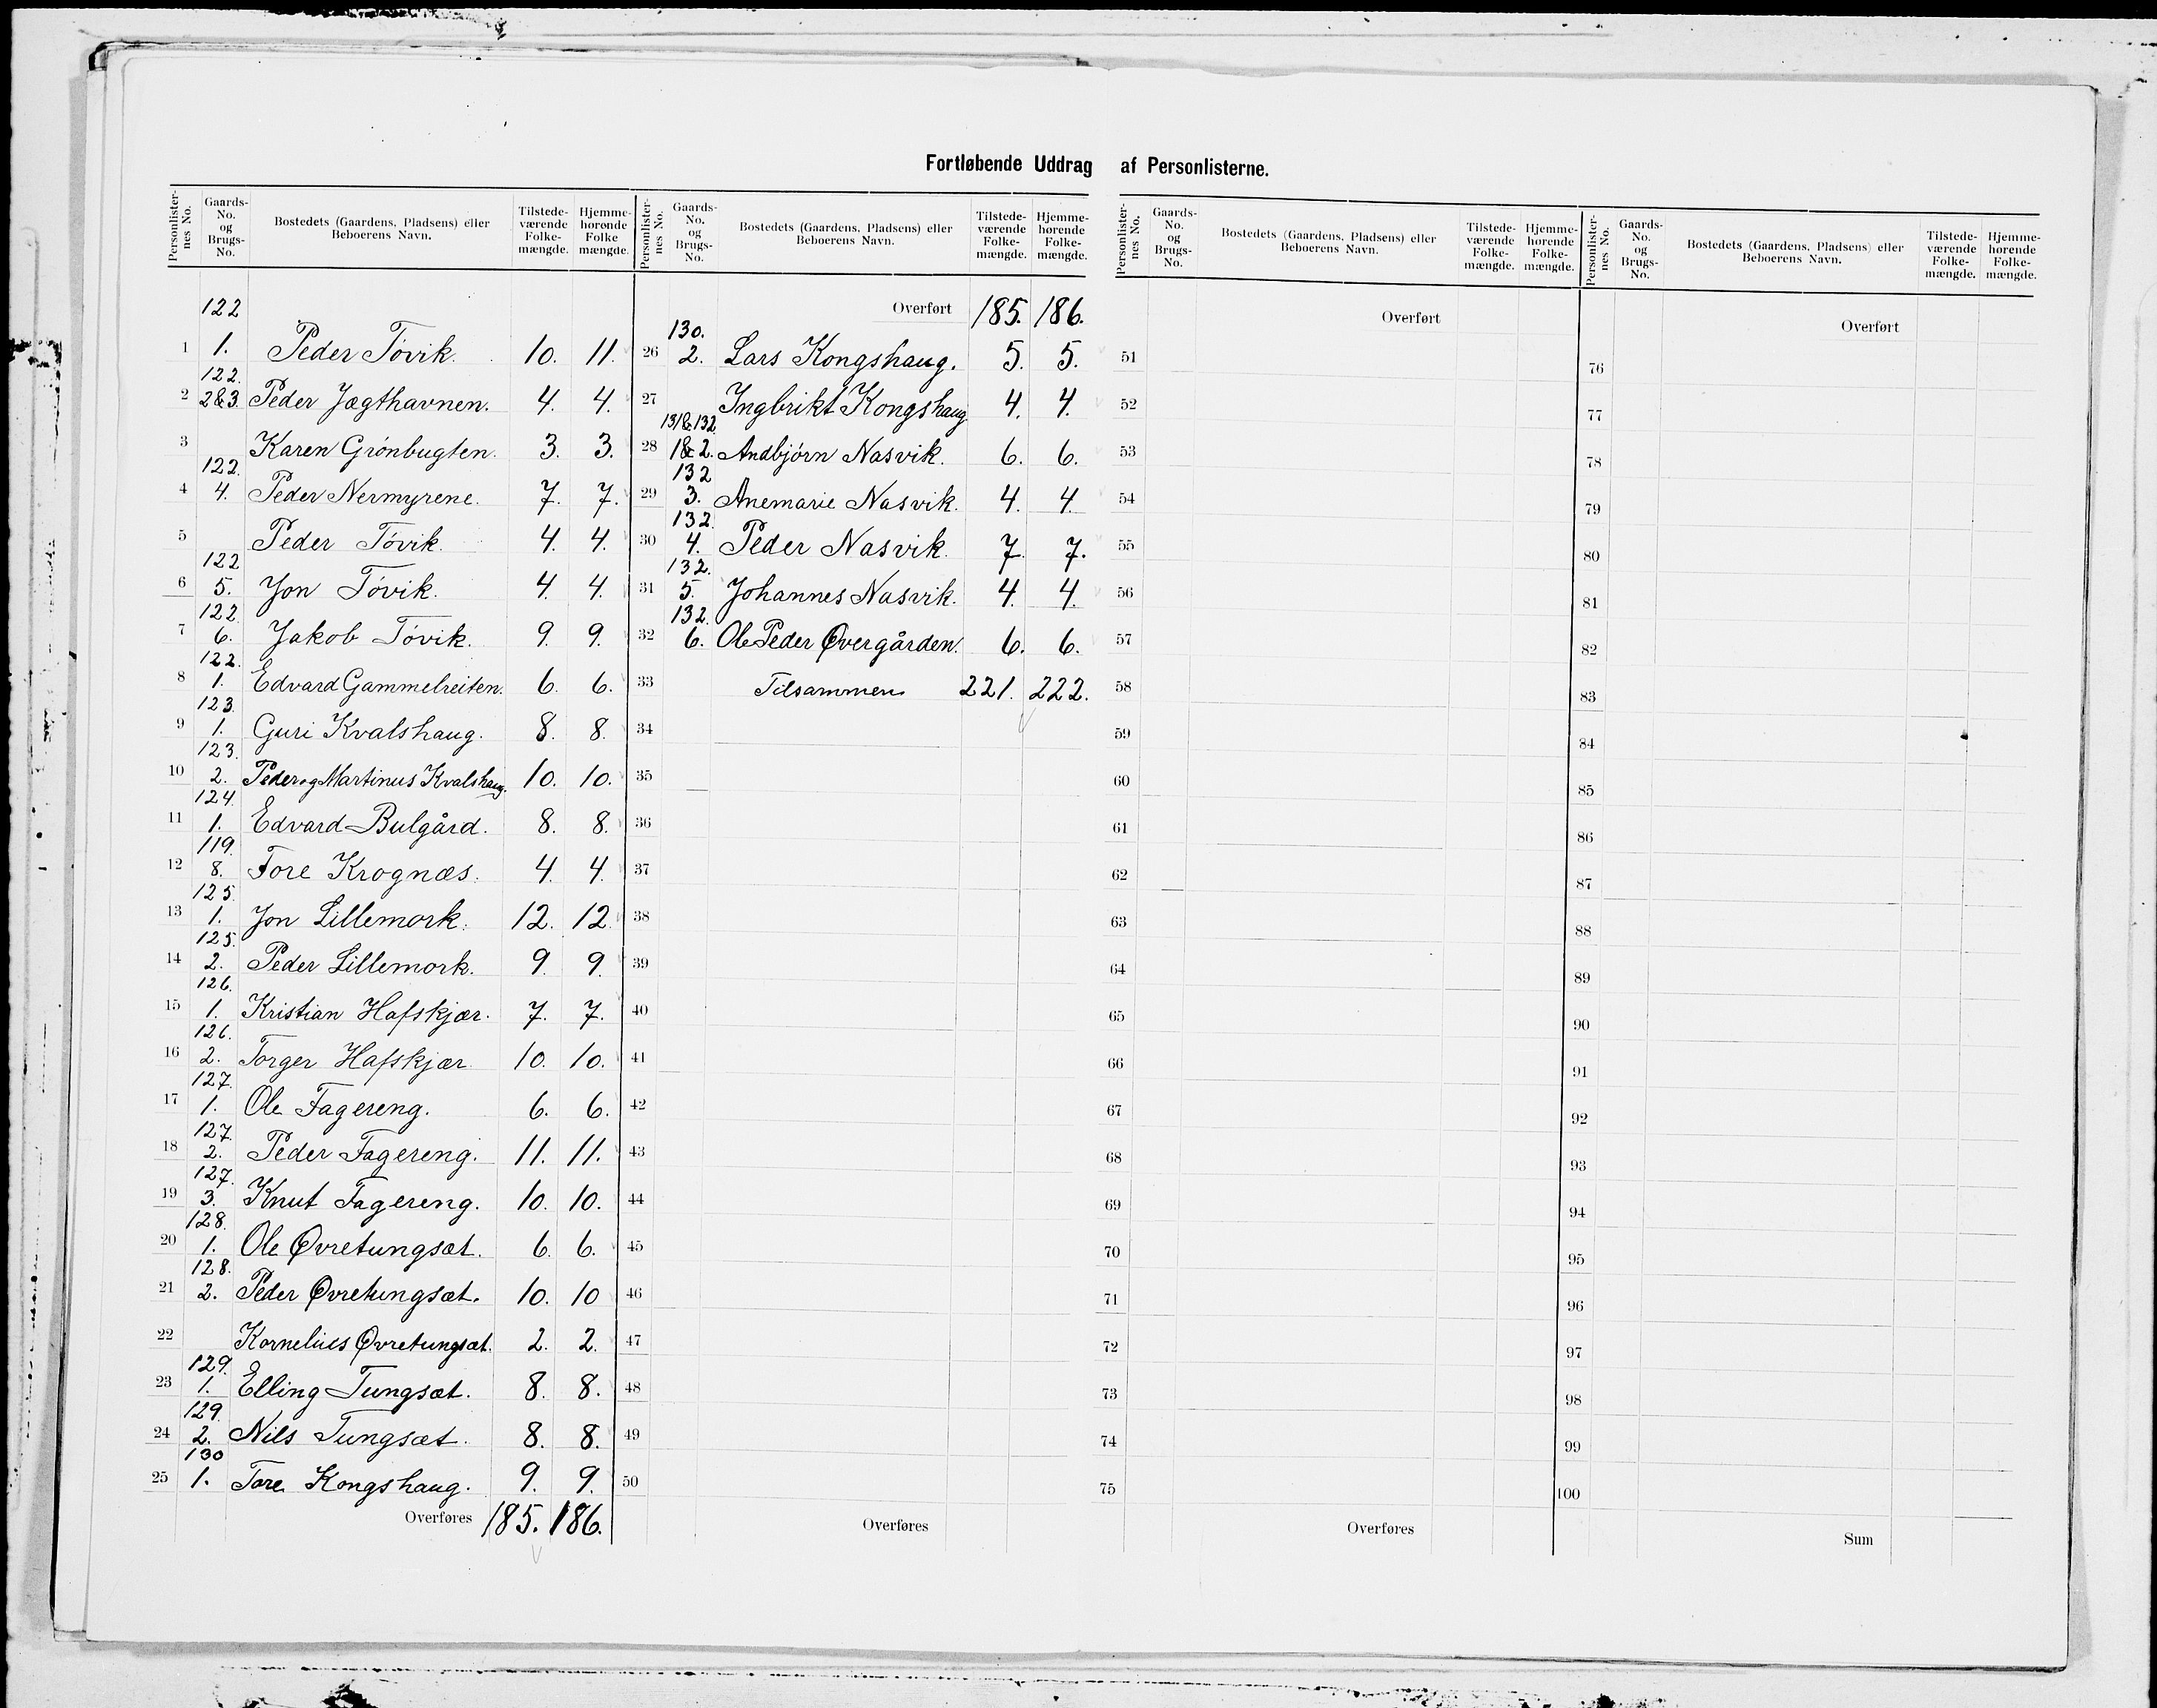 Fortløbende Uddrag af Personlisterne.
Personlisternes No. Gaards-No. og Brugs-No. Bostedets (Gaardens, Pladsens) eller Beboerens Navn. Tilstedeværende Folkemængde. Hjemmehørende Folkemængde.
122
1 1. Peder Tövik. 10. 11.
122.
2 2&3. Peder Jægthavnen. 4. 4.
3 Karen Grönbugten. 3. 3.
122.
4 4. Peder Nermyrene. 7. 7.
5 Peder Tövik. 4. 4.
122
6 5. Jon Tövik. 4. 4.
122.
7 6. Jakob Tövik. 9. 9.
122.
8 1. Edvard Gammelreiten. 6. 6.
123.
9 1. Guri Kvalshaug. 8. 8.
123.
10 2. Peder og Martinus Kvalshaug. 10. 10.
124.
11 1. Edvard Bulgård. 8. 8.
119.
12 8. Tore Krognæs. 4. 4.
125.
13 1. Jon Lillemork. 12. 12.
125.
14 2. Peder Lillemork. 9. 9.
126.
15 1. Kristian Hafskjær. 7. 7.
126.
16 2. Torger Hafskjær. 10. 10.
127.
17 1. Ole Fagereng. 6. 6.
127.
18 2. Peder Fagereng. 11. 11.
127.
19 3. Knut Fagereng. 10. 10.
128.
20 1. Ole Øvretungsæt. 6. 6.
128.
21 2. Peder Øvretungsæt. 10. 10
22 Kornelius Øvretungsæt. 2. 2.
129.
23 1. Elling Tungsæt. 8. 8.
129.
24 2. Nils Tungsæt. 8. 8.
130
25 1. Tore Kongshaug. 9. 9.
Overføres 185. 186.
Personlisternes No. Gaards-No. og Brugs-No. Bostedets (Gaardens, Pladsens) eller Beboerens Navn. Tilstedeværende Folkemængde. Hjemmehørende Folkemængde.
Overført 185. 186.
130.
26 2. Lars Kongshaug. 5. 5.
27 Ingbrikt Kongshaug 4. 4.
131&132.
28 1&2. Andbjörn Nasvik. 6. 6.
132
29 3. Anemarie Nasvik. 4. 4.
132.
30 4. Peder Nasvik. 7. 7.
132.
31 5. Johannes Nasvik. 4. 4.
132.
32 6. Ole Peder Øvergården. 6. 6.
33 Tilsammen 221. 222.
34
35
36
37
38
39
40
41
42
43
44
45
46
47
48
49
50
Overføres
Personlisternes No. Gaards-No. og Brugs-No. Bostedets (Gaardens, Pladsens) eller Beboerens Navn. Tilstedeværende Folkemængde. Hjemmehørende Folkemængde.
Overført
51
52
53
54
55
56
57
58
59
60
61
62
63
64
65
66
67
68
69
70
71
72
73
74
75
Overføres
Personlisternes No. Gaards-No. og Brugs-No. Bostedets (Gaardens, Pladsens) eller Beboerens Navn. Tilstedeværende Folkemængde. Hjemmehørende Folkemængde.
Overført
76
77
78
79
80
81
82
83
84
85
86
87
88
89
90
91
92
93
94
95
96
97
98
99
100
Sum